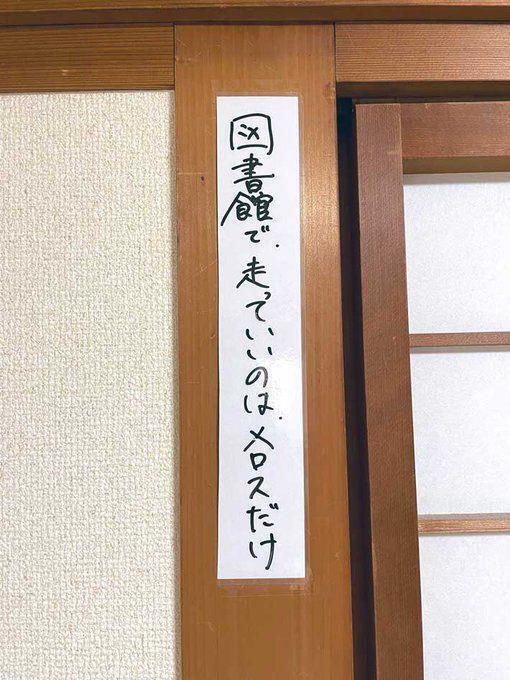 図書館で走っていいのはメロスだけ